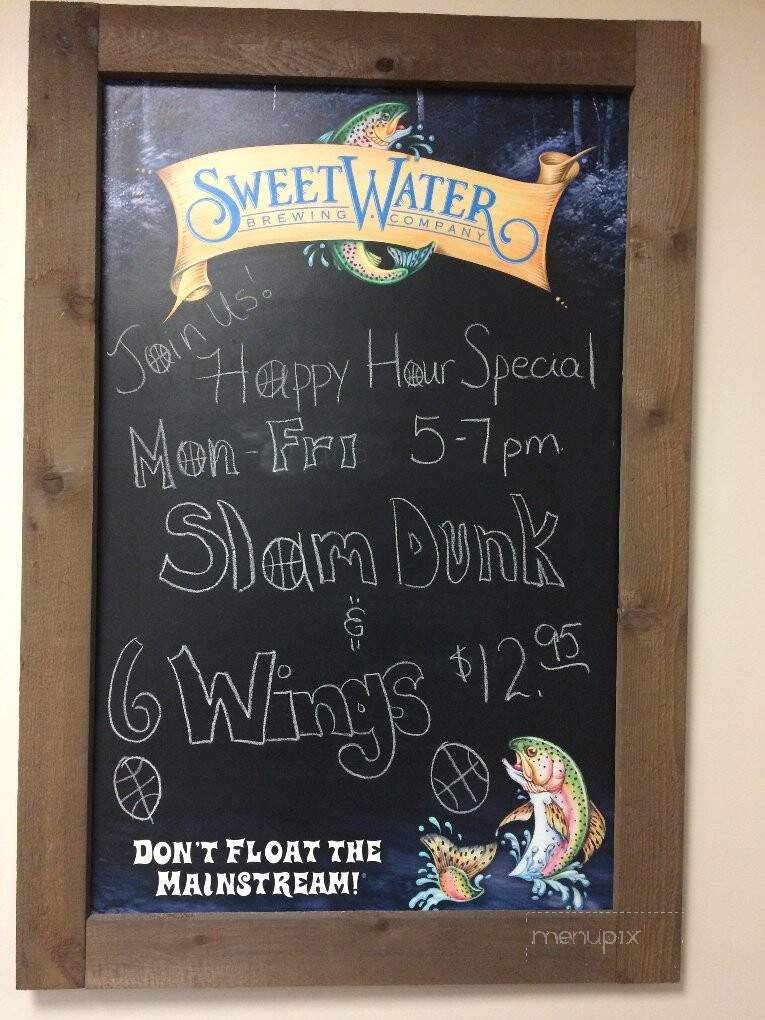 SWEETWATER
BREWING COMPANY
Join Us!
Happy Hour Special
Mon-Fri 5-7pm
Slam Dunk
&
6 Wings $12.95
DON'T FLOAT THE
MAINSTREAM!
menupix